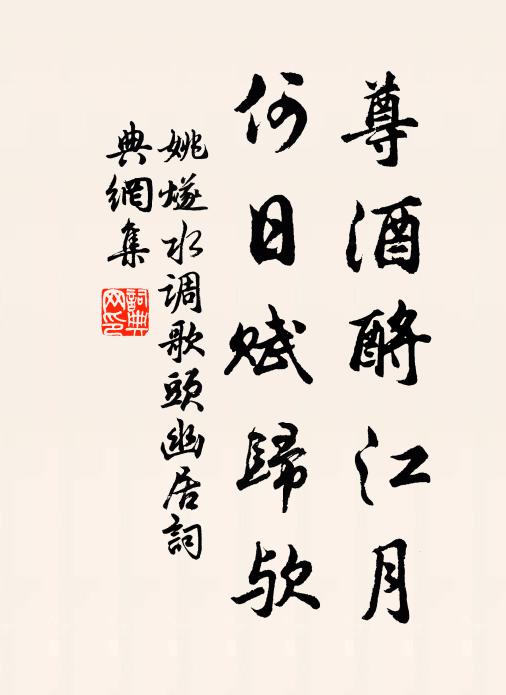 尊酒酹江月
何日赋歸欤
姚燧水调歌頭幽居詞
典網集
詞典
网印